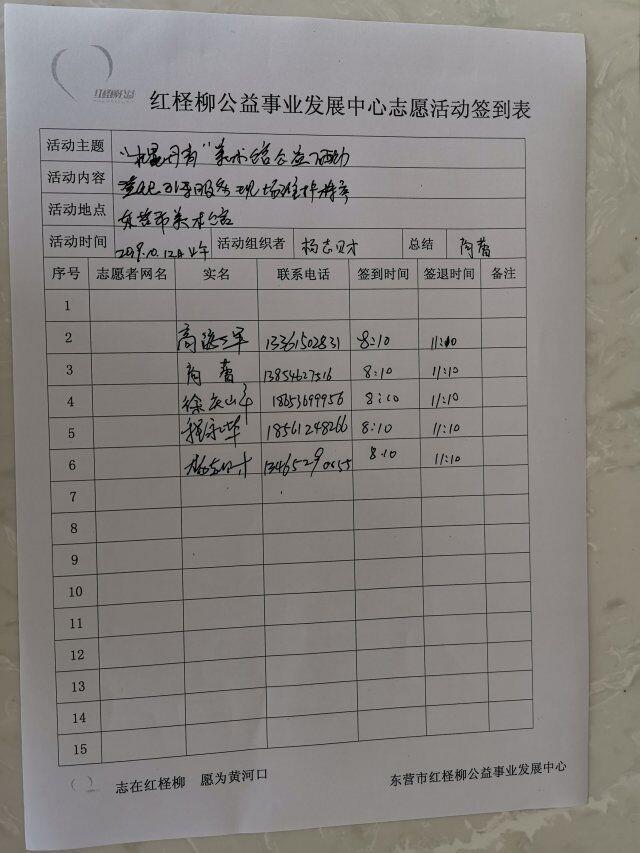 红柽柳公益
红柽柳公益事业发展中心志愿活动签到表
活动主题 美术馆公益活动
活动内容 现场维持秩序
活动地点 东营市美术馆
活动时间 2019.10.12日上午 活动组织者 杨志才 总结 陶蕾
序号 志愿者网名 实名 联系电话 签到时间 签退时间 备注
1
2 高海军 13361502831 8:10 11:10
3 陶蕾 13854627516 8:10 11:10
4 18653699956 8:10 11:10
5 程永华 18561248266 8:10 11:10
6 杨志才 8:10 11:10
7
8
9
10
11
12
13
14
15
志在红柽柳 愿为黄河口
东营市红柽柳公益事业发展中心